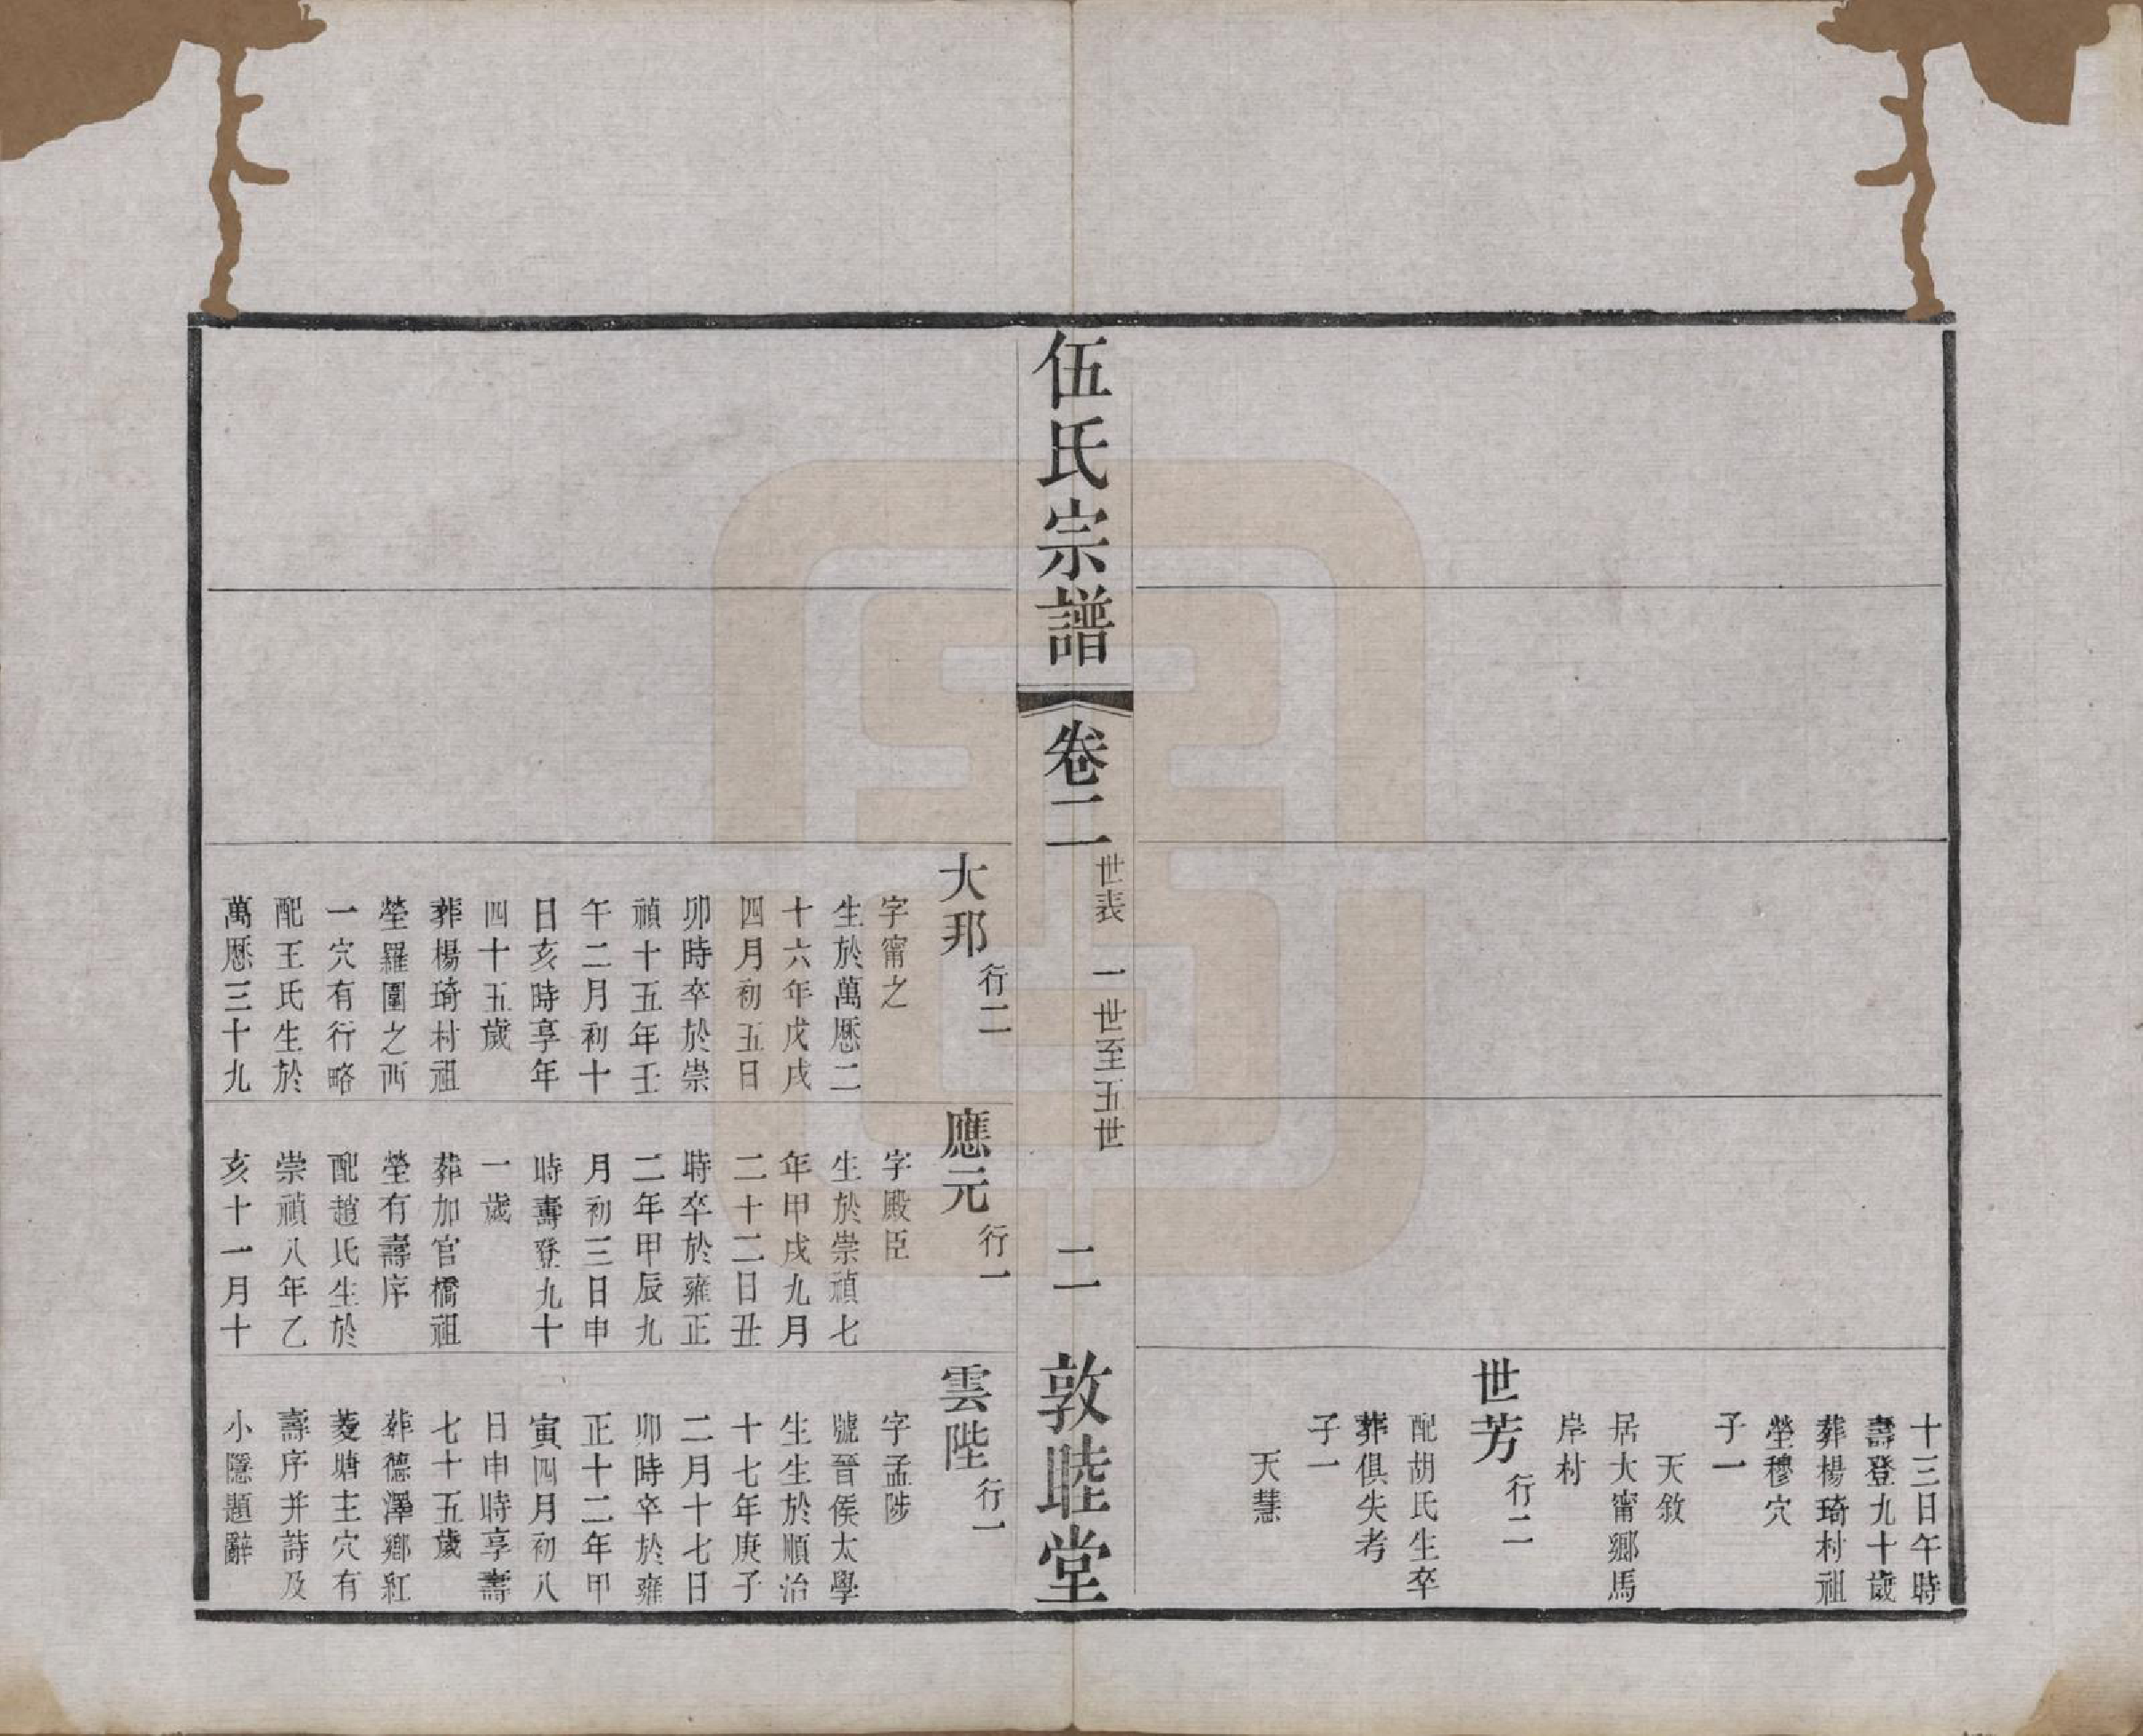 十三日午時
壽登九十歲
葬楊琦村祖
塋穆穴
子一
天敘
居大甯鄉馬
岸村
世芳 行二
配胡氏生卒
葬俱失考
子一
天慧
伍氏宗譜 卷二 世表 一世至五世 二 敦睦堂
大邦 行二
字甯之
生於萬厯二
十六年戊戌
四月初五日
卯時卒於崇
禎十五年壬
午二月初十
日亥時享年
四十五歲
葬楊琦村祖
塋羅圍之西
一穴有行略
配王氏生於
萬厯三十九
應元 行一
字殿臣
生於崇禎七
年甲戌九月
二十二日丑
時卒於雍正
二年甲辰九
月初三日申
時壽登九十
一歲
葬加官橋祖
塋有壽序
配趙氏生於
崇禎八年乙
亥十一月十
雲陛 行一
字孟陟
號晉侯太學
生生於順治
十七年庚子
二月十七日
卯時卒於雍
正十二年甲
寅四月初八
日申時享壽
七十五歲
葬德澤鄉紅
菱塘主穴有
壽序并詩及
小隱題辭